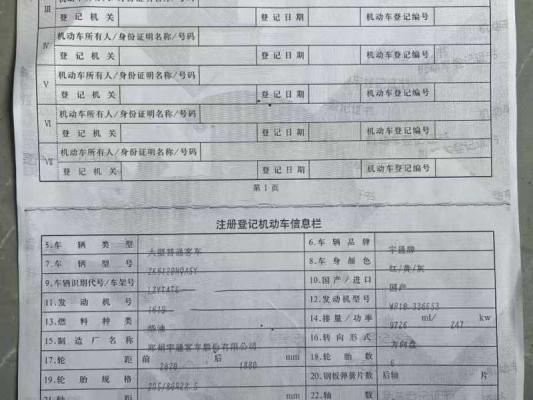 III
登记机关 登记日期 机动车登记编号
IV 机动车所有人/身份证明名称/号码
登记机关 登记日期 机动车登记编号
V 机动车所有人/身份证明名称/号码
登记机关 登记日期 机动车登记编号
VI 机动车所有人/身份证明名称/号码
登记机关 登记日期 机动车登记编号
VII 机动车所有人/身份证明名称/号码
登记机关 登记日期 机动车登记编号
第1页
注册登记机动车信息栏
5.车辆类型 大型普通客车 6.车辆品牌 宇通牌
7.车辆型号 8.车身颜色 红/黄/灰
9.车辆识别代号/车架号 10.国产/进口 国产
11.发动机号 12.发动机型号
13.燃料种类 柴油 14.排量/功率 9726 ml/ 247 kw
15.制造厂名称 郑州宇通客车股份有限公司 16.转向形式 方向盘
17.轮距 前 2020 后 1880 mm 18.轮胎数 6
19.轮胎规格 295/80R22.5 20.钢板弹簧片数 后轴 片
21.轴距 mm 22.轴数